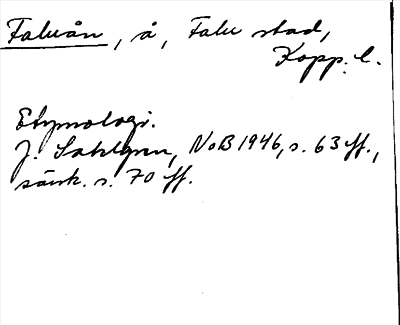 Faluån, å, Falu stad,
Kopp. l.
Etymologi.
J. Sahlgren, NoB 1946, s. 63 ff.,
särsk. s. 70 ff.